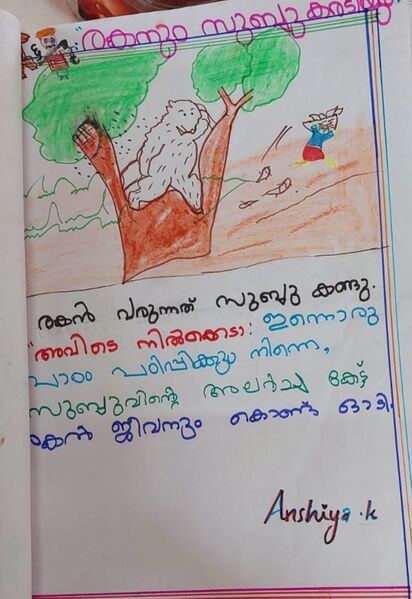 "രങ്കനും സുബ്ബുകരടിയും"
രങ്കൻ വരുന്നത് സുബ്ബു കണ്ടു.
"അവിടെ നിൽക്കെടാ! ഇന്നൊരു
പാഠം പഠിപ്പിക്കും നിന്നെ,
സുബ്ബുവിന്റെ അലർച്ച കേട്ട്
രങ്കൻ ജീവനും കൊണ്ട് ഓടി.
Anshiya.k